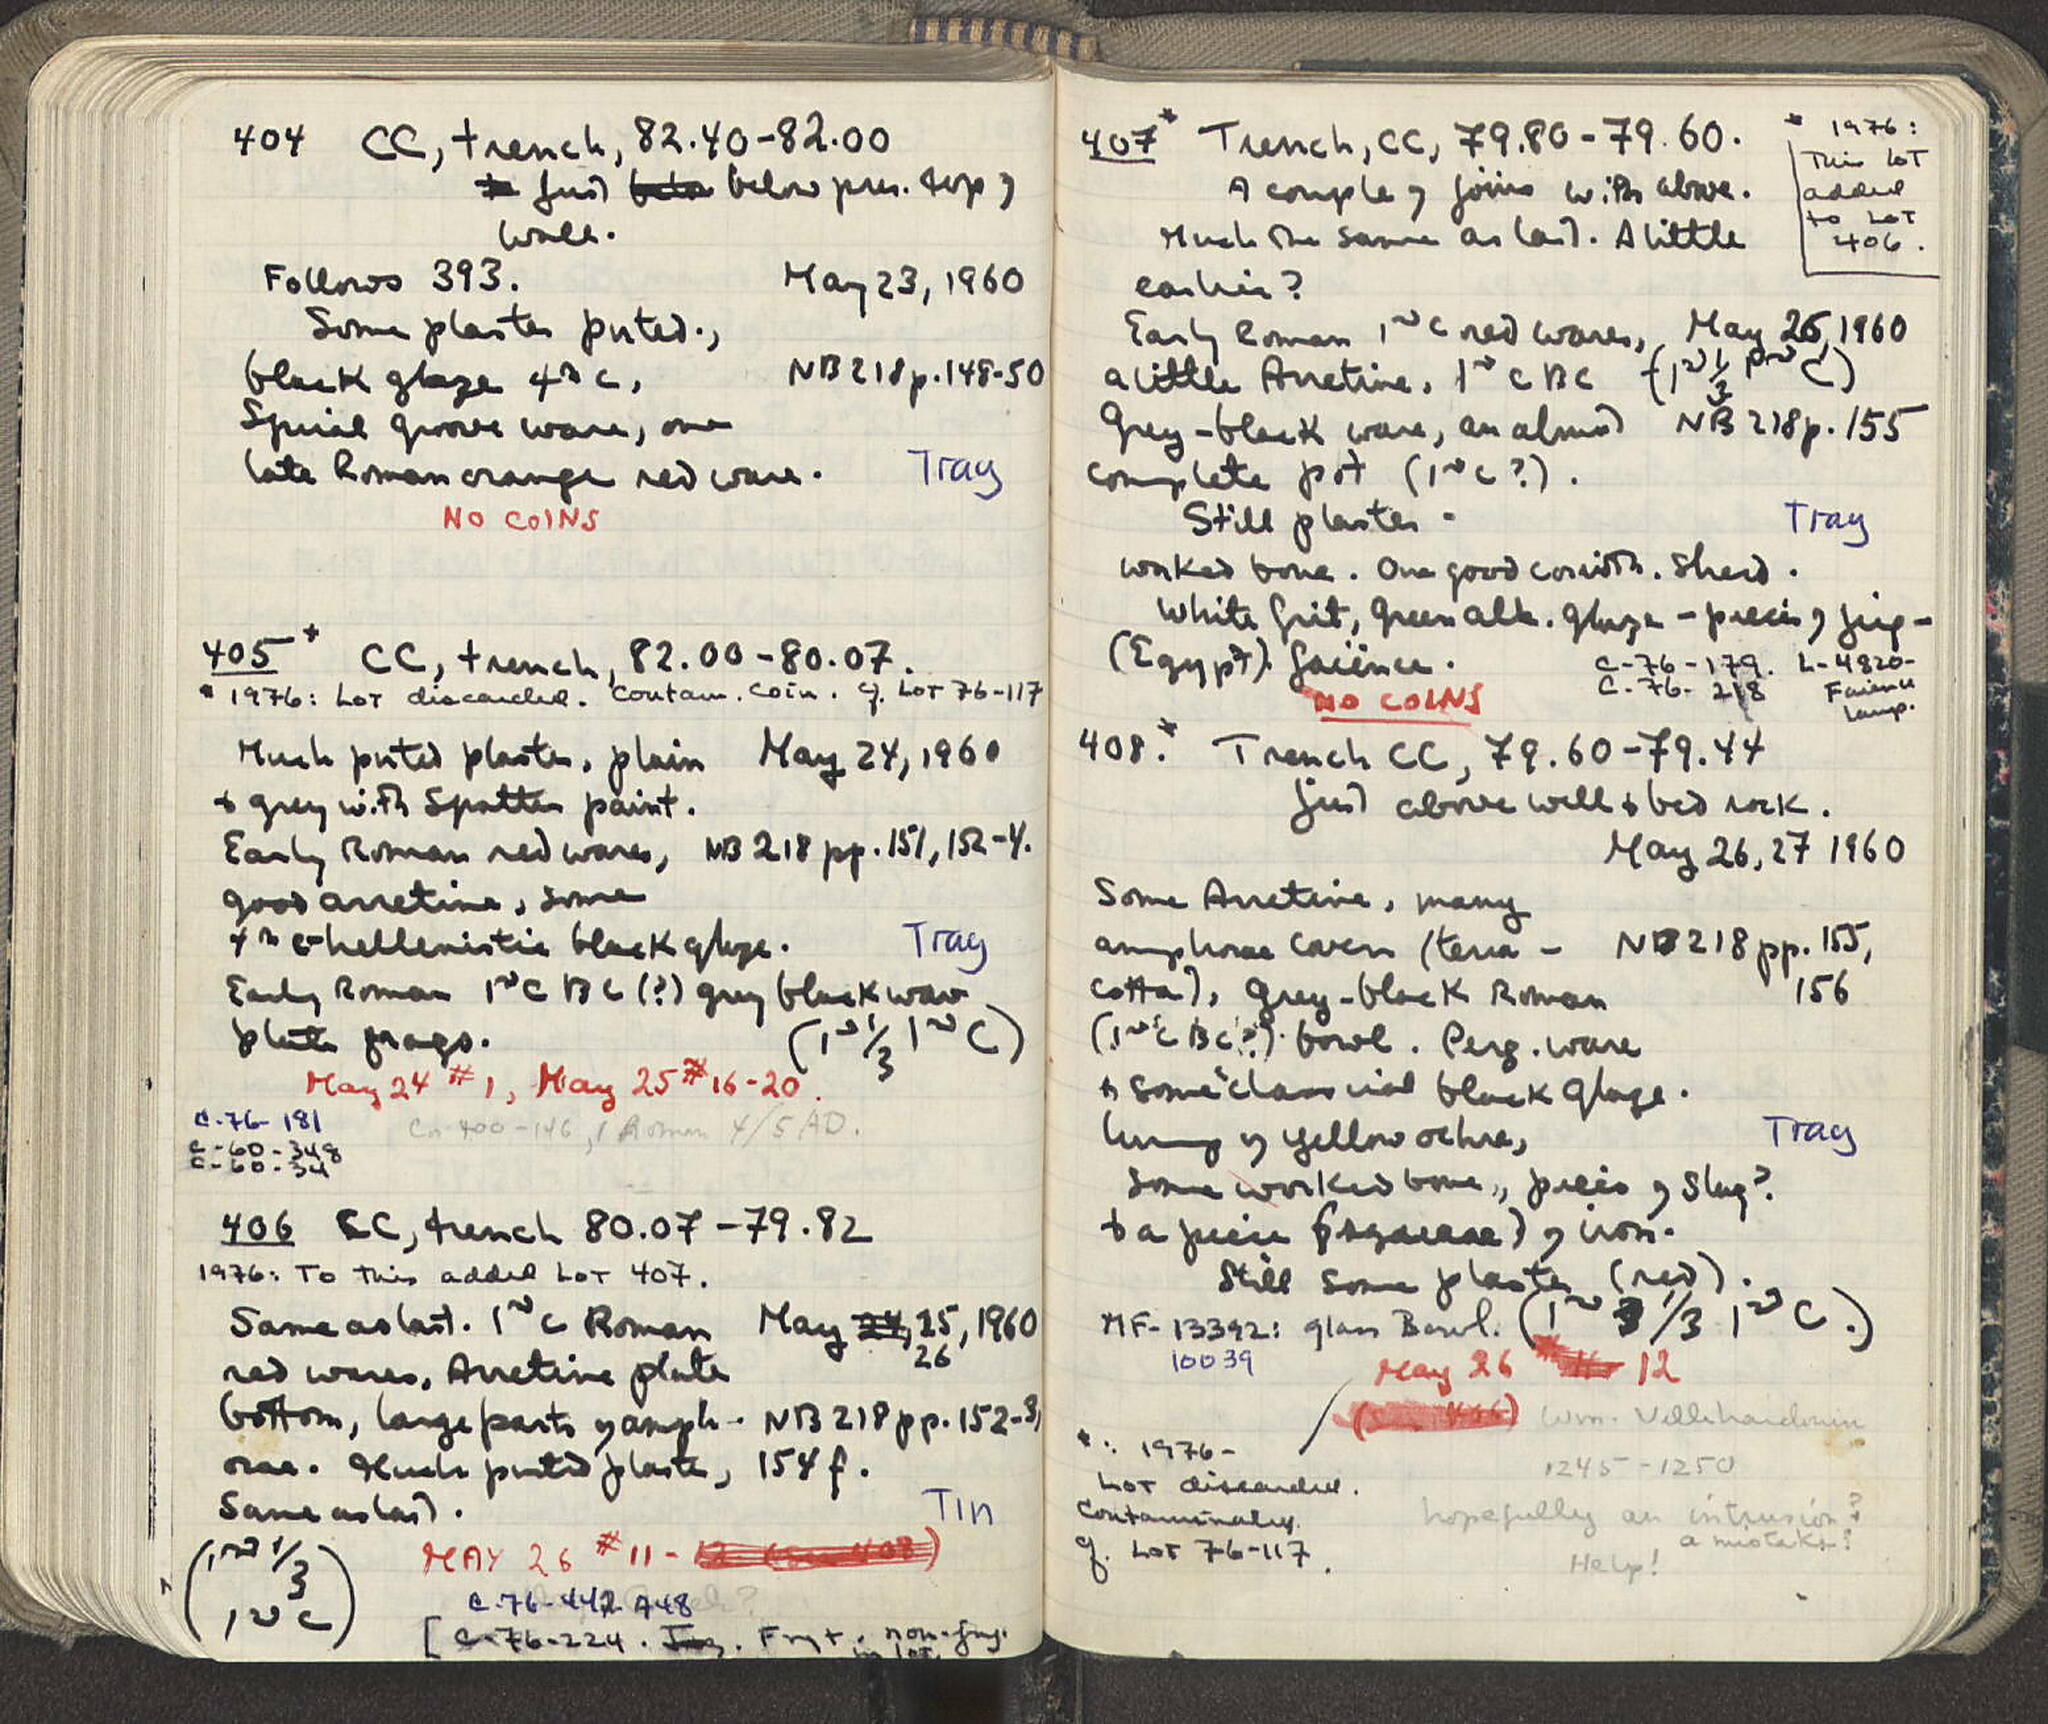 404 CC, trench, 82.40-82.00
Just below pres. top of
wall.
Follows 393. May 23, 1960
Some plaster ptted.,
black glaze 4th c, NB 218 p. 148-50
Spiral groove ware, one
late Roman orange red ware. Tray
NO COINS
405* CC, trench, 82.00-80.07.
* 1976: Lot discarded. Contam. coin. cf. Lot 76-117
Much ptted plaster, plain May 24, 1960
& grey with Spatter paint.
Early Roman red wares, NB 218 pp. 151, 152-4.
good arretine, some
4th c-hellenistic black glaze. Tray
Early Roman 1st C BC (?) grey black ware
plate frags. (1st 1/3 1st C)
May 24 #1, May 25 #16-20.
C-76-181
C-60-348
C-60-34
1 Roman 4/5 AD.
406 CC, trench 80.07-79.82
1976: To this added Lot 407.
Same as last. 1st c Roman May 24, 25, 1960
26
red wares, Arretine plate
bottom, large parts of amph- NB 218 pp. 152-3,
orae. Much ptted plaster, 154 f.
Same as last. Tin
(1st 1/3
1st C)
MAY 26 #11 - 12 (See 408)
C-76-442 A48
[C-76-224. Frgt. non-joy.
in lot.
407* Trench, CC, 79.80-79.60.
* 1976:
This lot
added
to Lot
406.
A couple of joins with above.
Much the same as last. A little
earlier?
Early Roman 1st C red wares, May 26, 1960
a little Arretine, 1st C BC (1st 1/3 1st C)
Grey-black ware, an almost NB 218 p. 155
complete pot (1st C?).
Still plaster. Tray
worked bone. One good corinth. Sherd.
White grit, green alk. glaze - pieces of jug-
(Egypt). faience.
C-76-179. L-4820-
C-76-218 Faience
Lamp.
NO COINS
408.* Trench CC, 79.60-79.44
just above well & bed rock.
May 26, 27 1960
Some Arretine, many
amphorae covers (terra- NB 218 pp. 155,
cotta), grey-black Roman 156
(1st C BC?) bowl. Perg. ware
& some classical black glaze.
lump of yellow ochre, Tray
Some worked bone, pieces of Slag?.
& a piece of iron.
Still some plaster (red).
MF-13392: glass Bowl. (1st 1/3 1st C.)
10039
May 26 12
Wm. Villehardouin
1245-1250
hopefully an intrusion?
a mistake?
Help!
*: 1976-
Lot discarded.
cf. Lot 76-117.